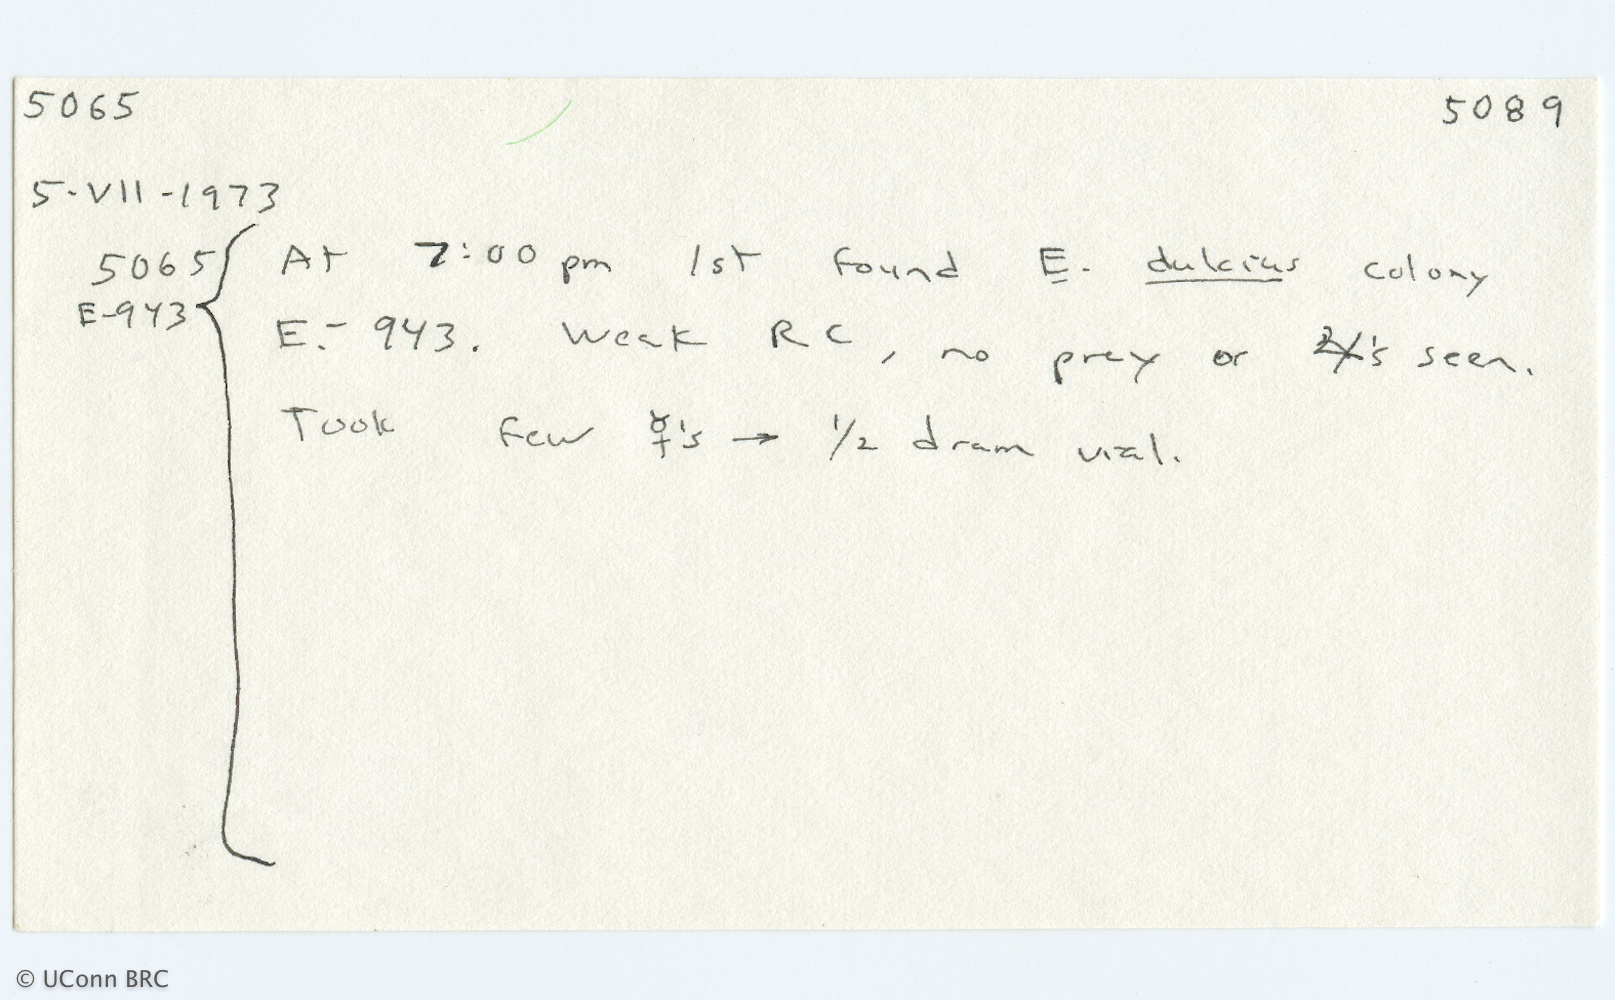 5065 5089
5-VII-1973
5065 At 7:00 pm 1st found E. dulcius colony
E-943 E.- 943. Weak RC, no prey or 's seen.
Took few ☿'s → 1/2 dram vial.
© UConn BRC